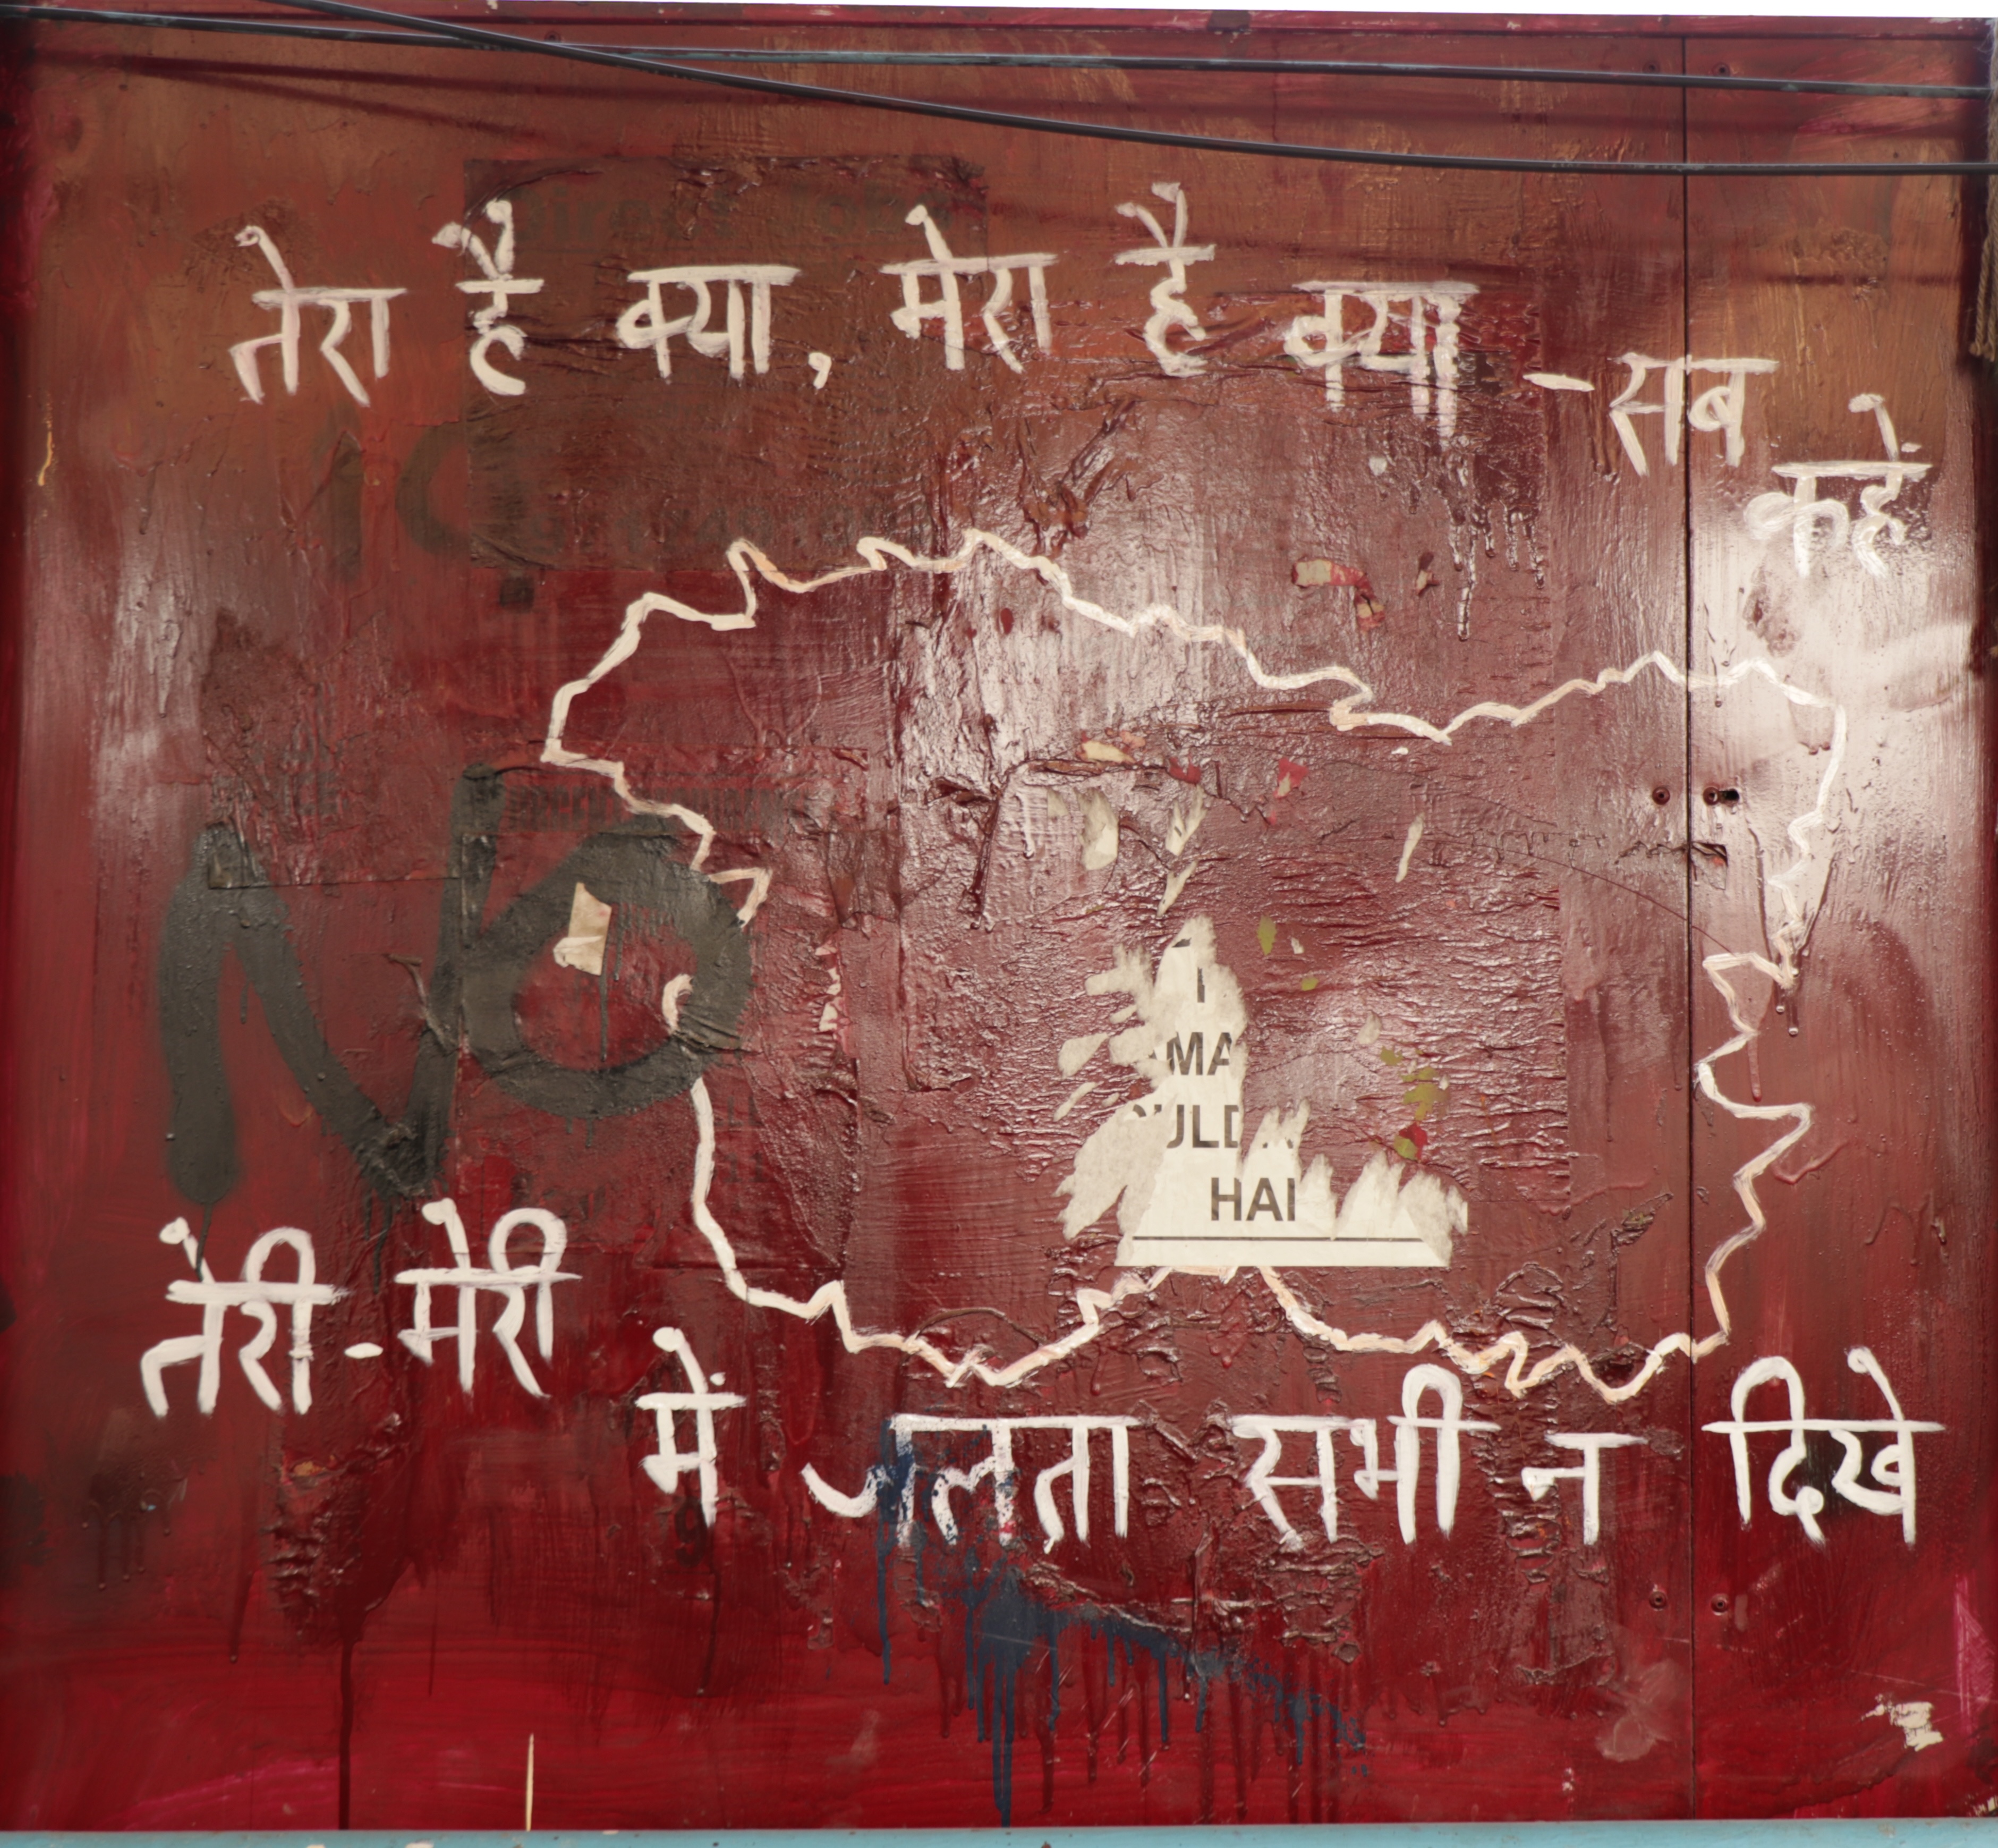 तेरा है क्या, मेरा है क्या - सब कहें
NO
HAI
तेरी - मेरी में जलता सभी न दिखे